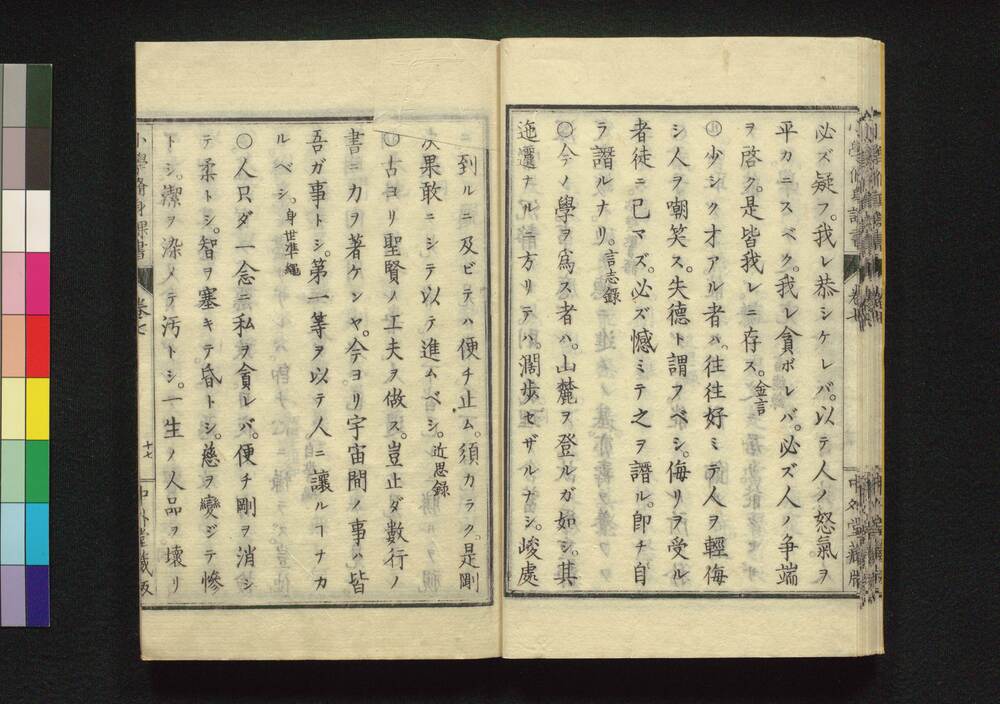 必ズ疑フ。我レ恭シケレバ。以テ人ノ怒氣ヲ
平カニスベク。我レ貪ボレバ。必ズ人ノ争端
ヲ啓ク。是皆我レニ存ス。金言
少シク才アル者ハ。往往好ミテ人ヲ輕侮
シ人ヲ嘲笑ス。失德ト謂フベシ。侮リヲ受ル
者徒ニ已マズ。必ズ憾ミテ之ヲ譖ル。卽チ自
ラ譖ルナリ。言志錄
〇今ノ學ヲ爲ス者ハ。山麓ヲ登ルガ如シ。其
迤邐ナルニ方リテハ。濶歩セザルナシ。峻處
ニ到ルニ及ビテハ便チ止ム。須カラク。是剛
決果敢ニシテ以テ進ムベシ。近思錄
〇古ヨリ聖賢ノ工夫ヲ做ス。豈止ダ數行ノ
書ニ力ヲ著ケンヤ。今ヨリ宇宙間ノ事ハ皆
吾ガ事トシ。第一等ヲ以テ人ニ讓ルヿナカ
ルベシ。身世準繩
〇人只ダ一念ニ私ヲ貪レバ。便チ剛ヲ消シ
テ柔トシ。智ヲ塞キテ昏トシ。慈ヲ變ジテ慘
トシ。潔ヲ染メテ汚トシ。一生ノ人品ヲ壞リ
小學脩身課書
卷七
十七
中外堂藏版